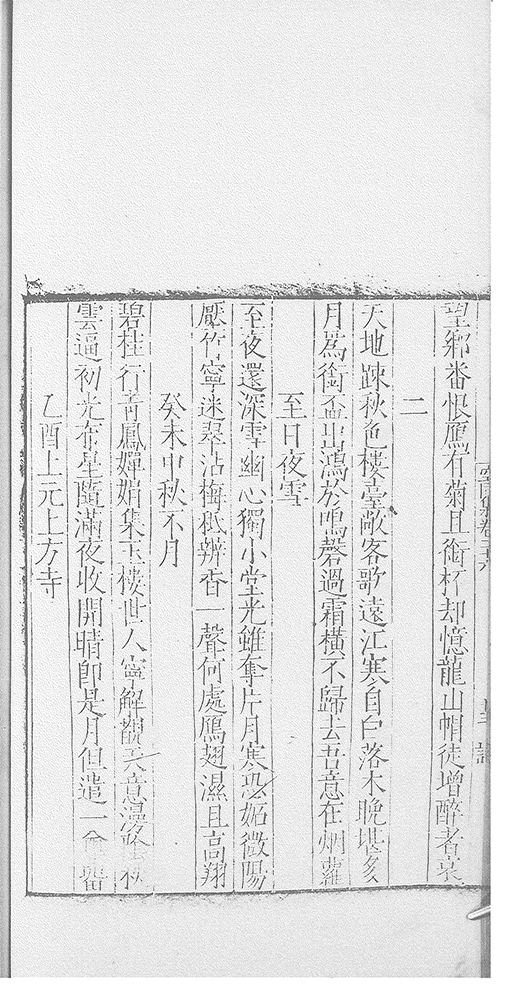 望鄉番恨鴈有菊且銜杯却憶龍山帽徒增醉者哀
二
天地疎秋色樓臺敞客歌遠江寒自白落木晚堪多
月爲銜盃出鴻於鳴磬過霜橫不歸去吾意在烟蘿
至日夜雪
至夜還深雪幽心獨小堂光雖奪片月寒恐妬微陽
壓竹寧迷翠沾梅秪辨香一聲何處鴈翅濕且高翔
癸未中秋不月
碧桂行青鳳嬋娟集玉樓世人寧解觀天意漫陰秋
雲逼初光布星隨滿夜收開晴即是月但遣一尊留
乙酉上元上方寺